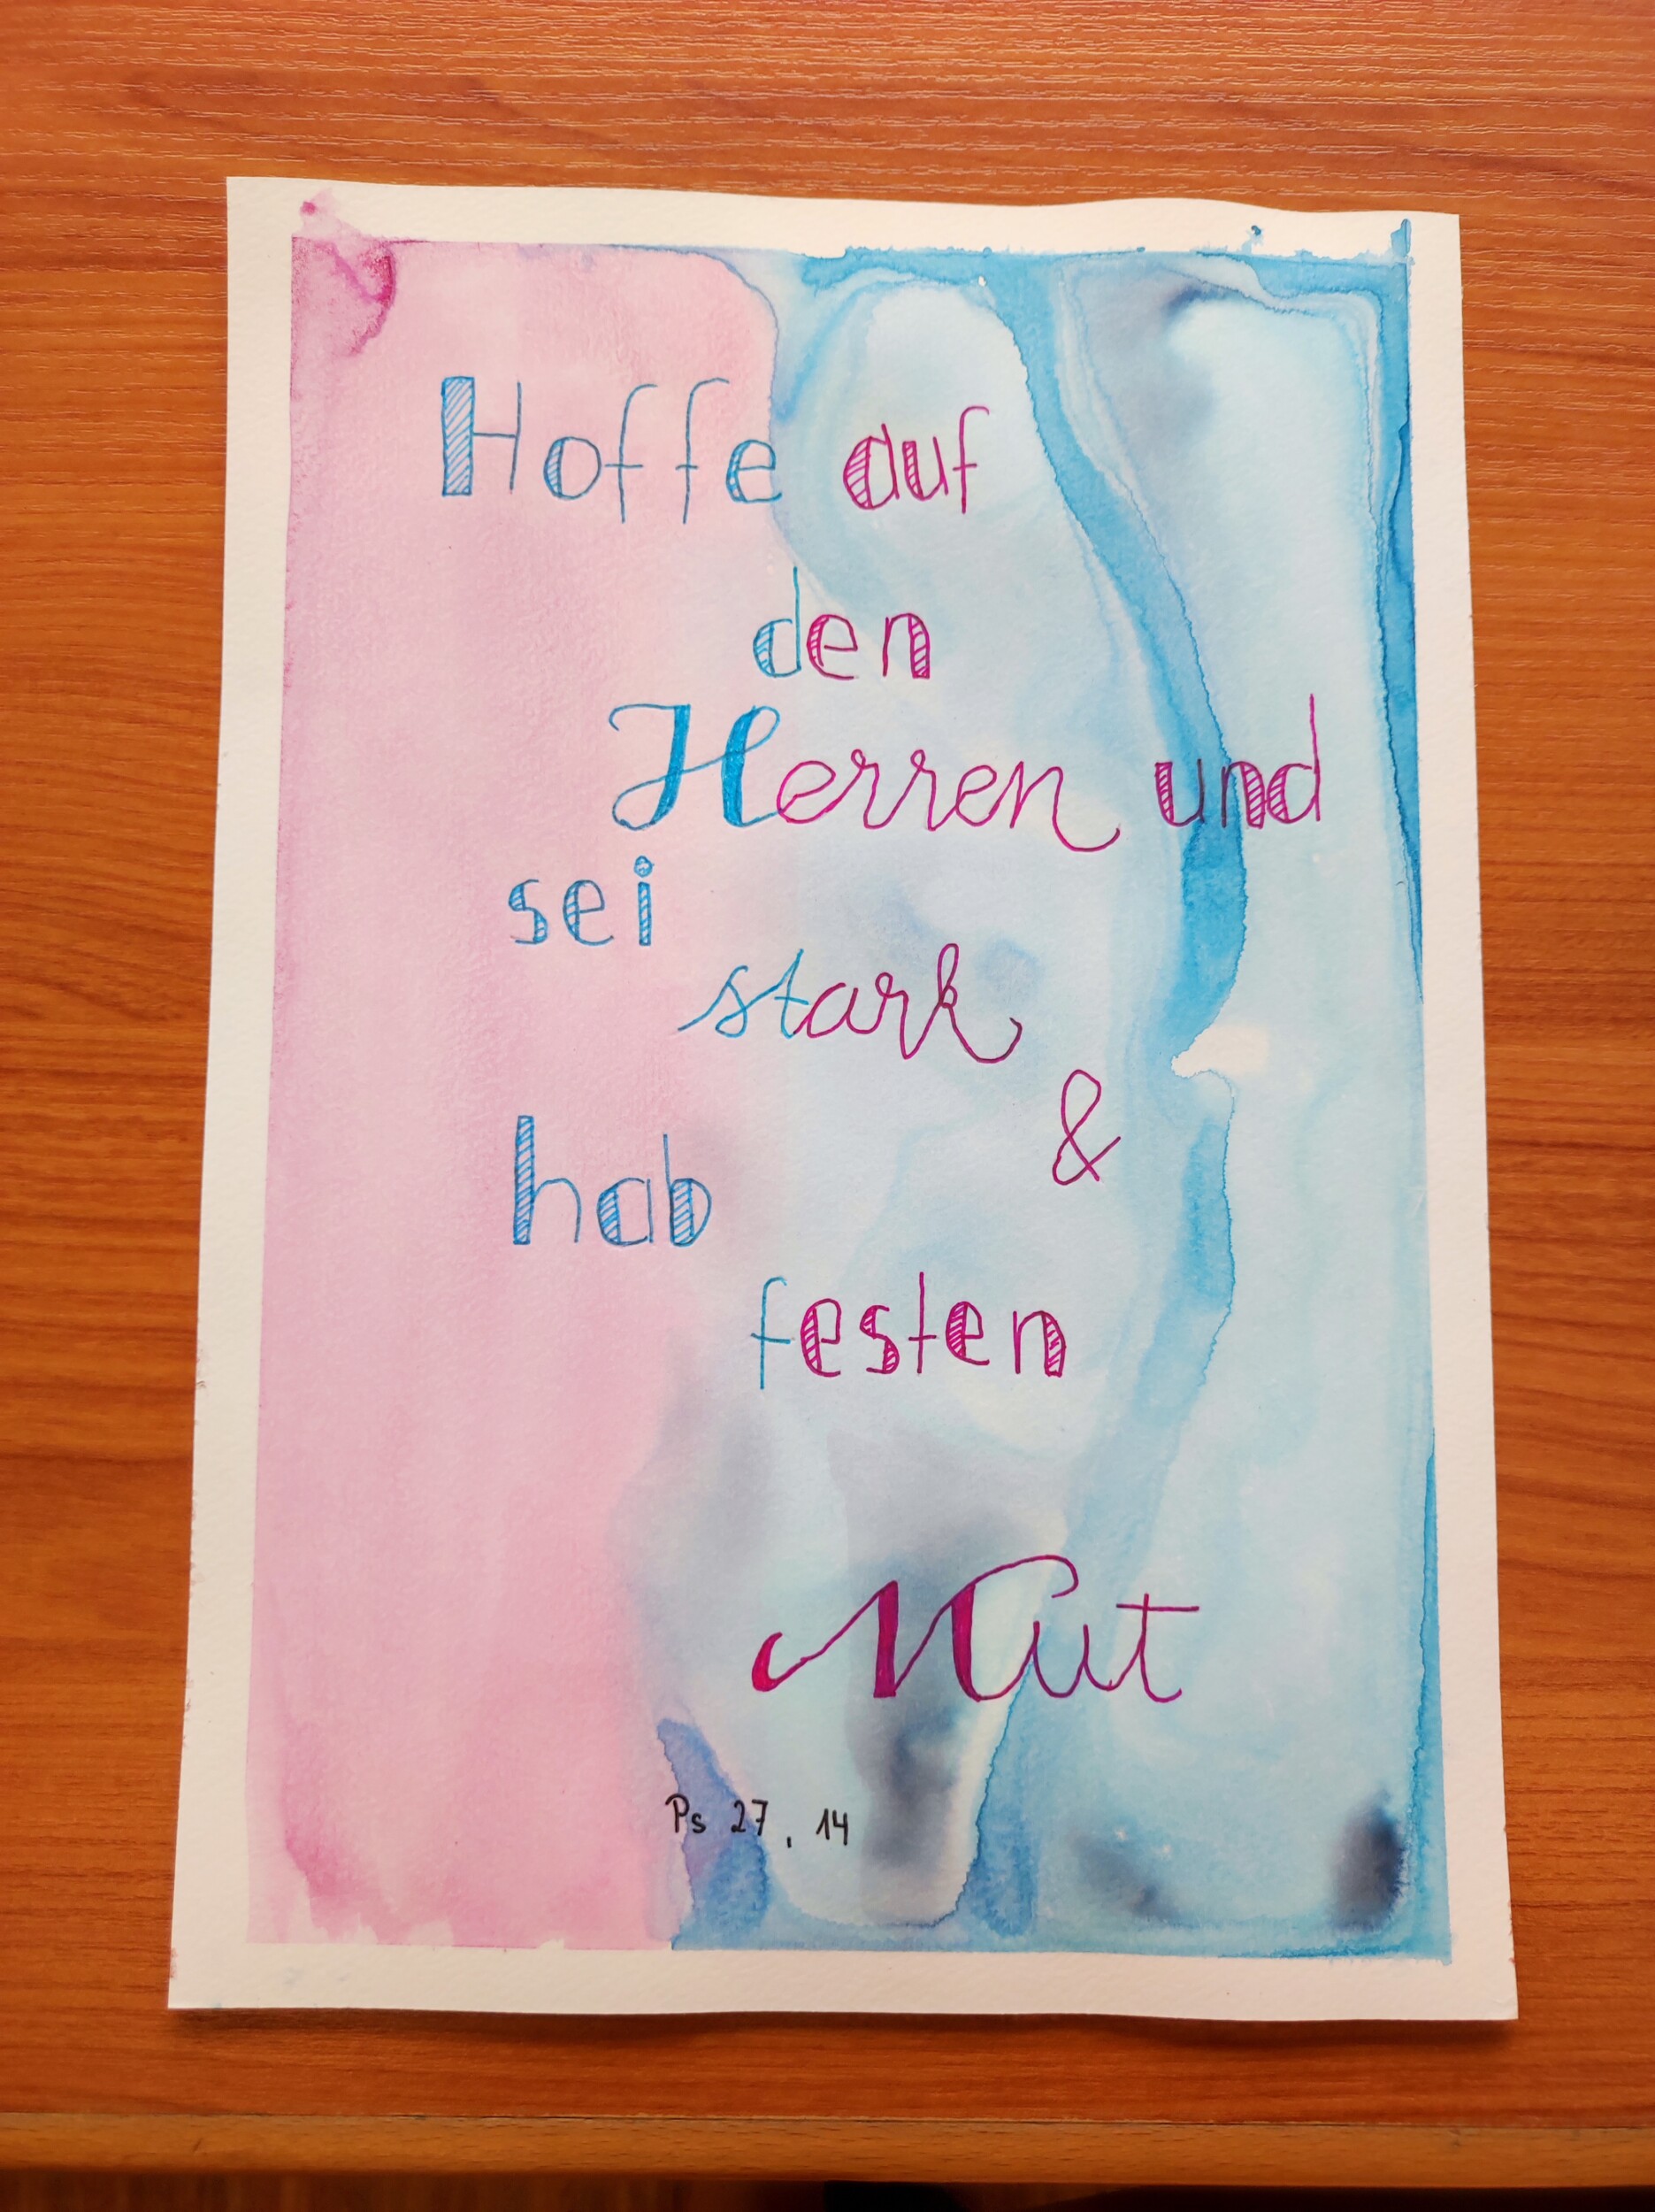 Hoffe auf
den
Herren und
sei
stark
&
hab
festen
Mut
Ps 27, 14